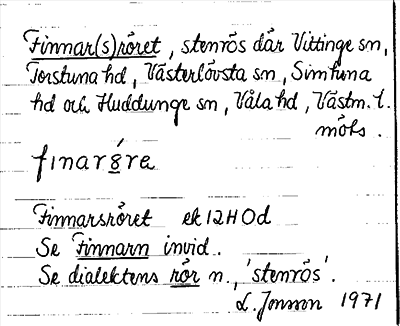 Finnar(s)röret, stenrös där Vittinge sn,
Torstuna hd, Västerlövsta sn, Simtuna
hd och Huddunge sn, Våla hd, Västm. l.
möts.
fìnarǿ̀re
Finnarsröret ek 12H0d
Se Finnarn invid.
Se dialektens rör n., 'stenrös'.
L. Jonsson 1971